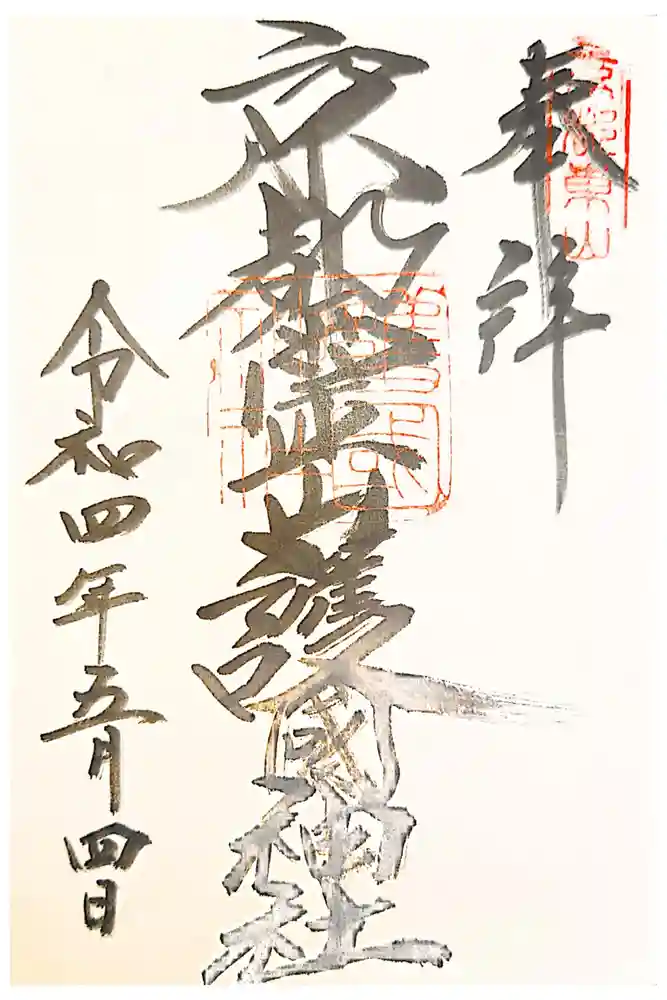 奉拝
京都東山
京都霊山護國神社
令和四年五月四日